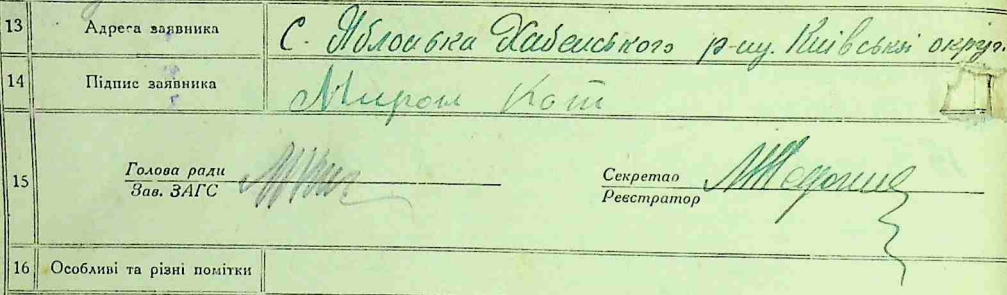 13 Адреса заявника С. Яблонька Хабенського р-ну. Київської округ.
14 Підпис заявника Мирон Кот
15 Голова ради Секретар
Зав. ЗАГС Реєстратор
16 Особливі та різні помітки